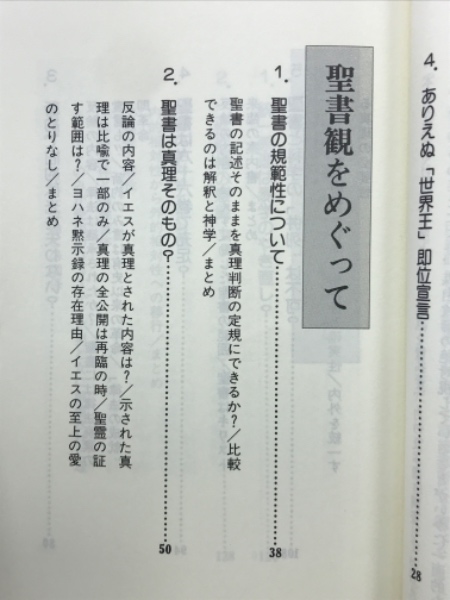 4. ありえぬ「世界王」即位宣言……………28
聖書観をめぐって
1. 聖書の規範性について……………38
聖書の記述そのままを真理判断の定規にできるか?/比較
できるのは解釈と神学/まとめ
2. 聖書は真理そのもの?……………50
反論の内容/イエスが真理とされた内容は?/示された真
理は比喩で一部のみ/真理の全公開は再臨の時/聖霊の証
す範囲は?/ヨハネ黙示録の存在理由/イエスの至上の愛
のとりなし/まとめ